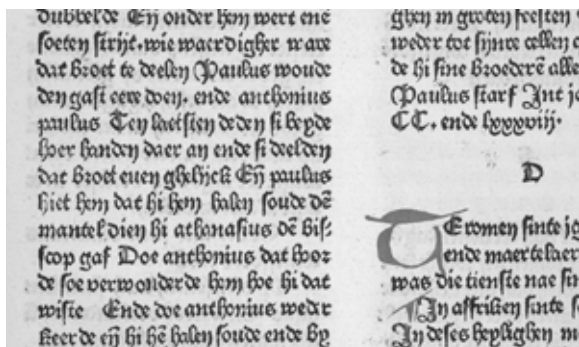 dubbelde Eñ onder hem wert ene
soeten strijt. wie waerdigher ware
dat broet te deelen Paulus woude
den gast eere doen. ende anthonius
paulus Ten laetsten deden si beyde
hoer handen daer an ende si deelden
dat broet even ghelijck Eñ paulus
hiet hem dat hi hem halen soude dē
mantel dien hi athanasius dē bis-
scop gaf Doe anthonius dat hoor
de soe verwonderde hem hoe hi dat
wiste Ende doe anthonius weder
keerde eñ hi hē halen soude ende by
ghen in groten feesten
weder tot sijnre cellen
de hi sine broederē alle
Paulus starf Int
CC. ende lxxxviij.
D
Eromen sinte
ende maertelaer
was die tienste nae
In affriken sinte
In deses heylighen